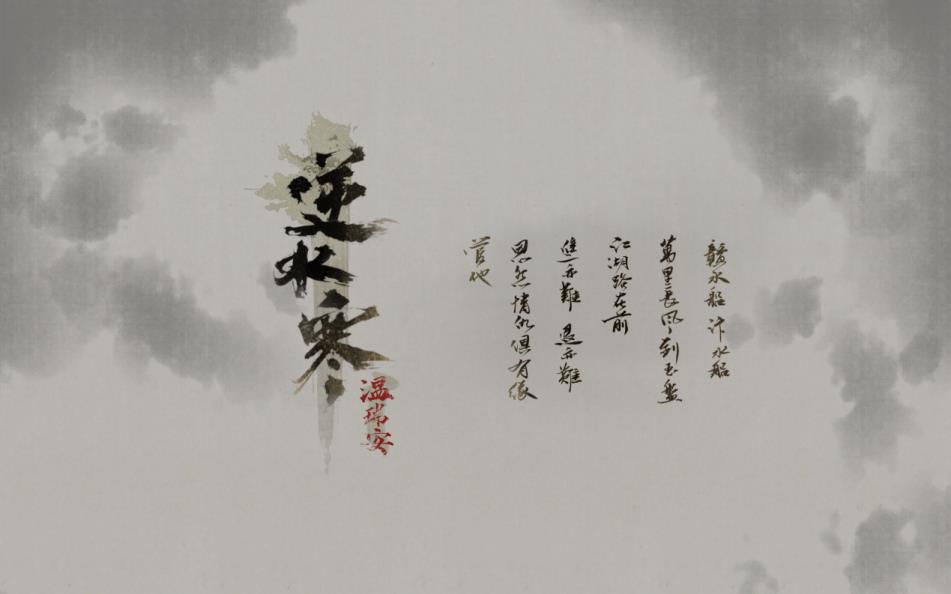 逆水寒
温瑞安
贛水船 汴水船
萬里長风到玉盤
江湖路在前
進亦難 退亦難
恩怨情仇俱有缘
管他